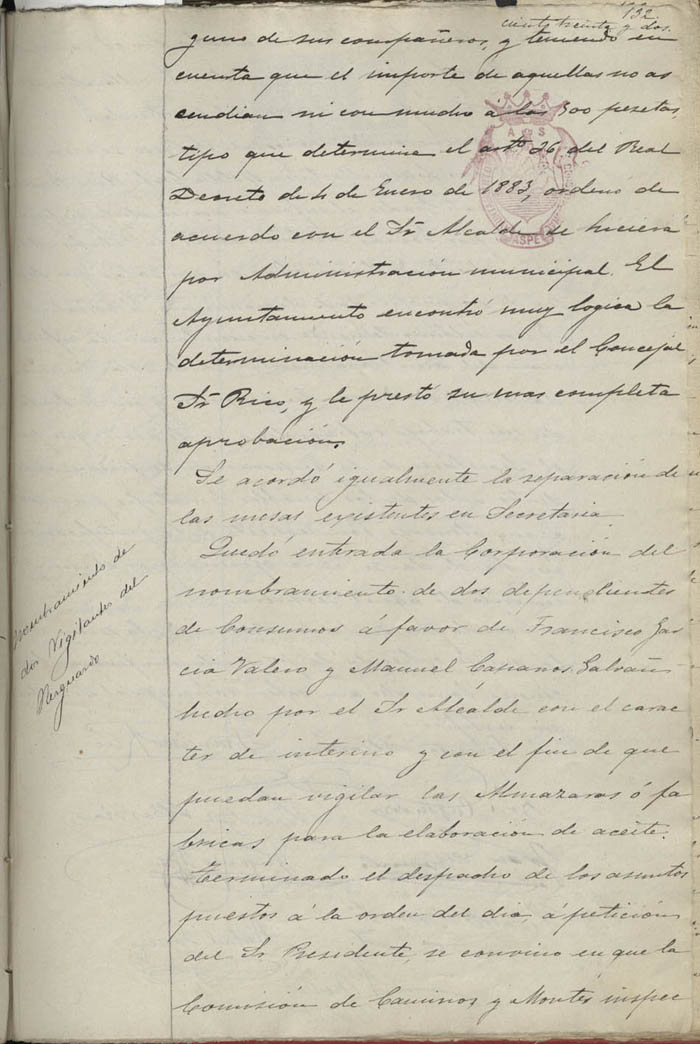 132
ciento treinta y dos.
guno de sus compañeros, y teniendo en
cuenta que el importe de aquellas no as
cendian ni con mucho á las 500 pesetas,
tipo que determina el artº 26 del Real
Decreto de 4 de Enero de 1883, ordenó de
acuerdo con el Sr Alcalde se hiciera
por Administración municipal. El
Ayuntamiento encontró muy logica la
determinación tomada por el Concejal,
Sr Rico, y le prestó su mas completa
aprobación.
Se acordó igualmente la separación de
las mesas existentes en Secretaria.
Quedó enterada la Corporación del
nombramiento de dos dependientes
de Consumos á favor de Francisco Gar
cia Valero y Manuel Galvañ
hecho por el Sr Alcalde con el carac
ter de interino y con el fin de que
puedan vigilar las Almazaras ó fa
bricas para la elaboración de aceite.
Terminado el despacho de los asuntos
puestos á la orden del dia, á petición
del Sr Presidente, se convino en que la
Comisión de Caminos y Montes inspec
Nombramiento de
dos Vigilantes del
Resguardo
A S
ASPE